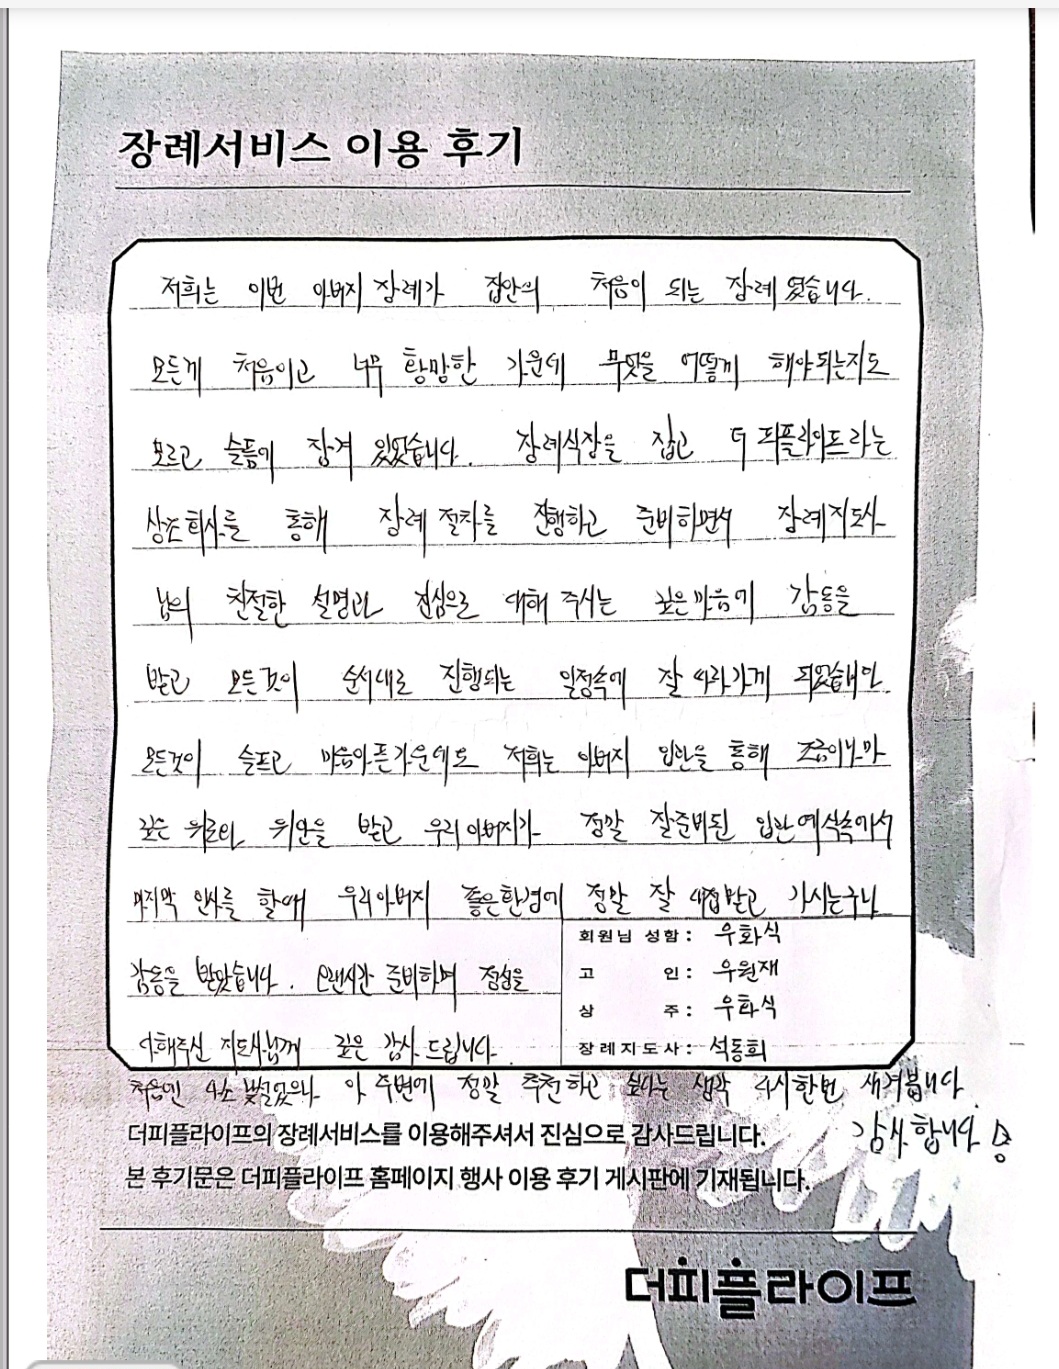 장례서비스 이용 후기
저희는 이번 아버지 장례가 집안의 처음이 되는 장례 였습니다.
모든게 처음이고 너무 황망한 가운데 무엇을 어떻게 해야되는지도
모르고 슬픔에 잠겨 있었습니다. 장례식장을 잡고 더 피플라이프라는
상조회사를 통해 장례 절차를 진행하고 준비하면서 장례지도사
님의 친절한 설명과 진심으로 대해 주시는 깊은마음에 감동을
받고 모든것이 순서대로 진행되는 일정속에 잘 따라가게 되었습니다.
모든것이 슬프고 마음아픈가운데도 저희는 아버지 입관을 통해 조금이나마
깊은 위로와 위안을 받고 우리아버지가 정말 잘준비된 입관예식속에서
마지막 인사를 할때 우리아버지 좋은환경에 정말 잘 대접받고 가시는구나
회원님 성함: 우화식
고 인: 우원재
감동을 받았습니다. 오랜시간 준비하며 정성을
상 주: 우화식
다해주신 지도사님께 깊은 감사 드립니다.
장례지도사: 석동희
처음엔 다소 낯설었으나 아 주변에 정말 추천하고 싶다는 생각 다시한번 새겨봅니다.
감사합니다
더피플라이프의 장례서비스를 이용해주셔서 진심으로 감사드립니다.
본 후기문은 더피플라이프 홈페이지 행사 이용 후기 게시판에 기재됩니다.
더피플라이프